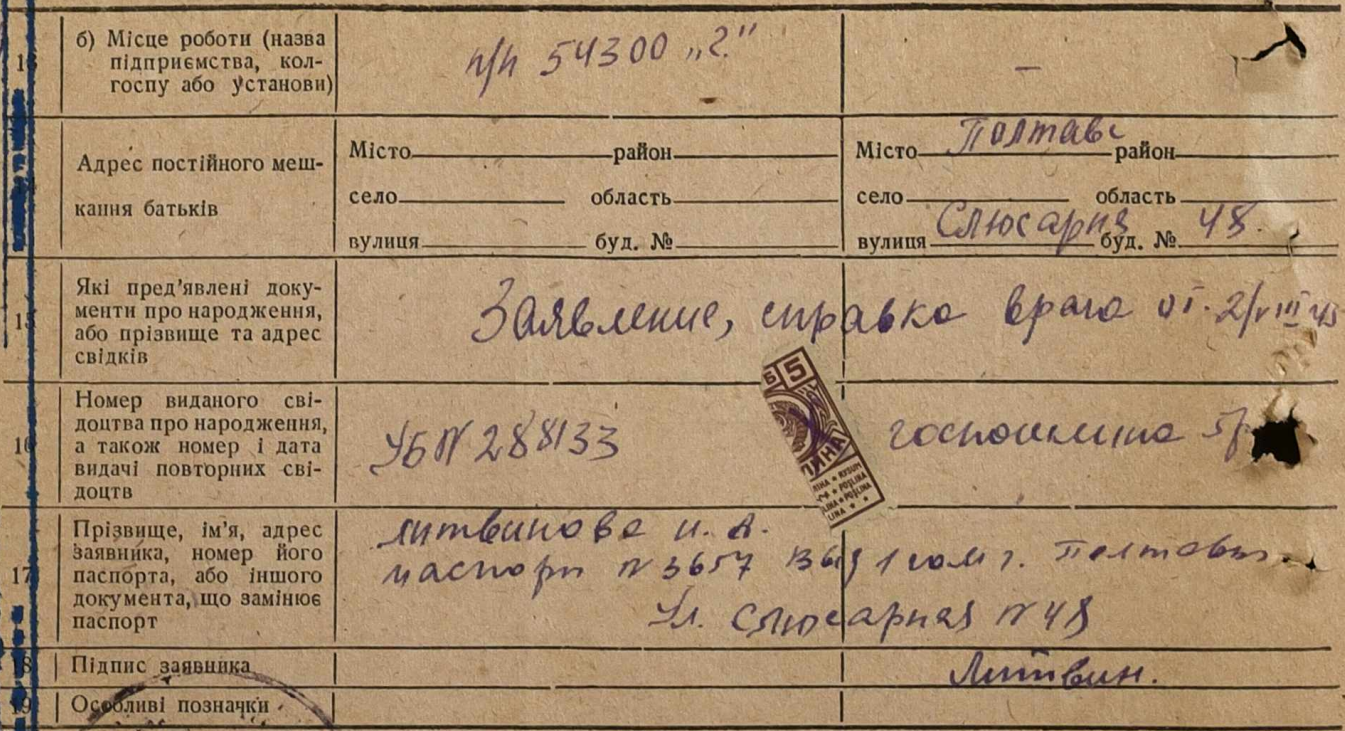 б) Місце роботи (назва
підприємства, кол-
госпу або установи)
п/п 54300 „2"
—
Адрес постійного меш-
кання батьків
Місто район
село область
вулиця буд. №
Місто Полтава район
село область
вулиця Слюсарная буд. № 48.
15
Які пред'явлені доку-
менти про народження,
або прізвище та адрес
свідків
Заявление, справка врача от 2/VIII 45
Номер виданого сві-
доцтва про народження,
а також номер і дата
видачі повторних сві-
доцтв
УБ N 288133
госпошлина 5р
5
17
Прізвище, ім'я, адрес
заявника, номер його
паспорта, або іншого
документа, що замінює
паспорт
Литвинова И. А.
паспорт N 3657 выд 1 гом г. Полтавы
Ул. Слюсарная N 48
18
Підпис заявника
Литвин.
19
Особливі позначки